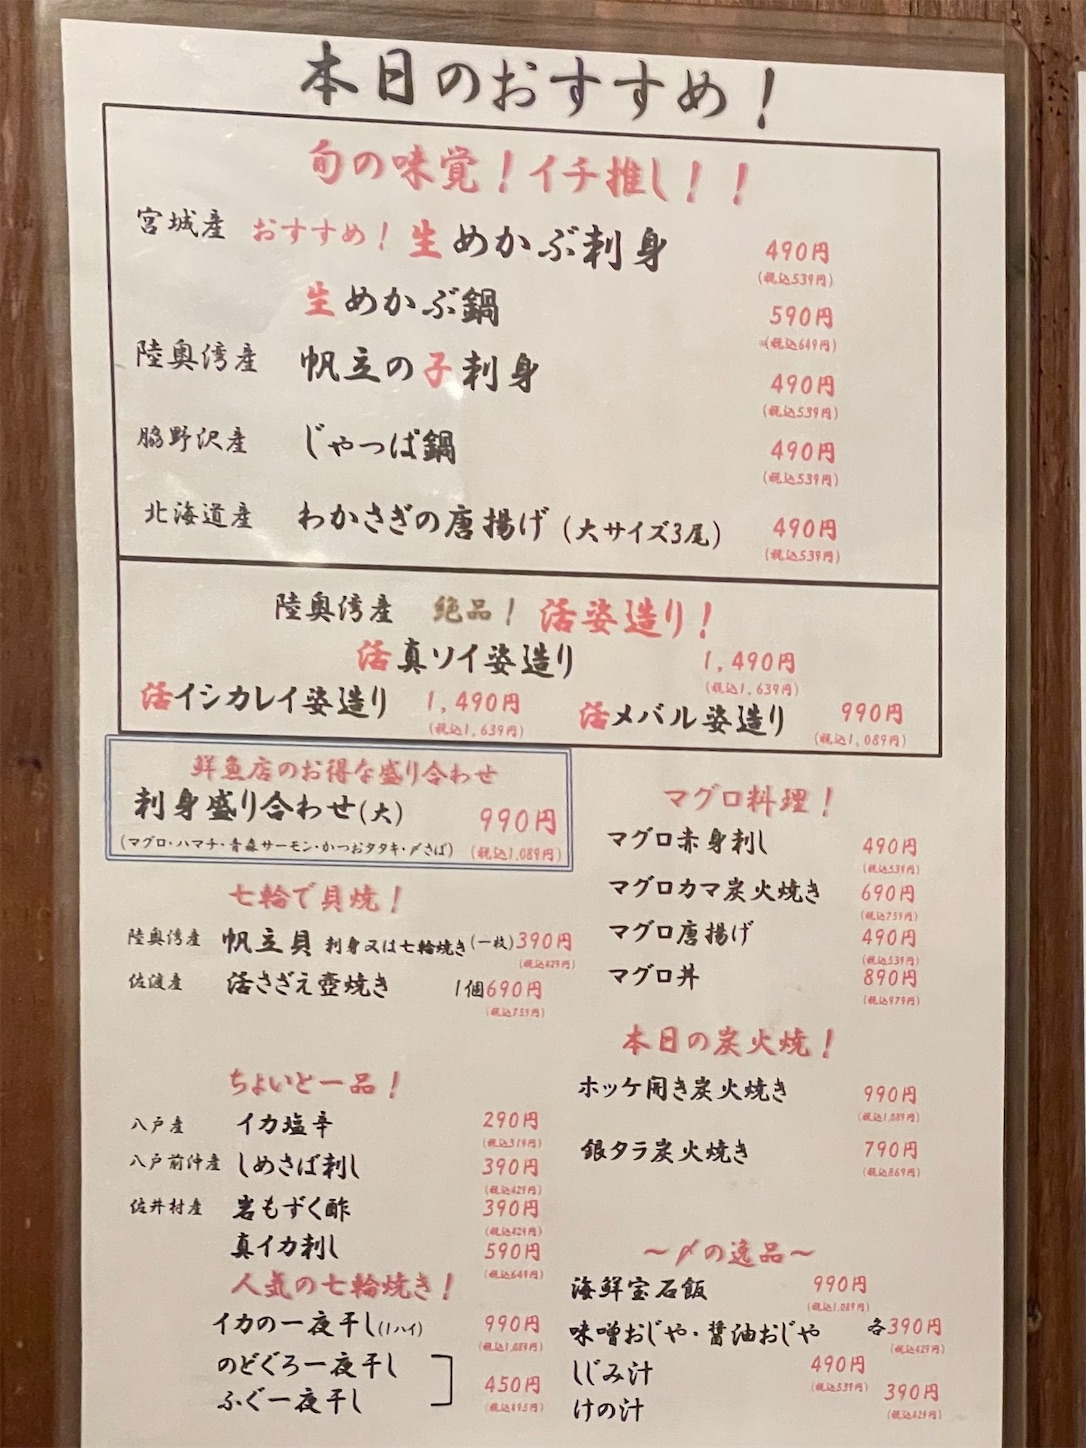 本日のおすすめ！
旬の味覚！イチ推し！！
宮城産 おすすめ！生めかぶ刺身 490円
(税込539円)
生めかぶ鍋 590円
(税込649円)
陸奥湾産 帆立の子刺身 490円
(税込539円)
脇野沢産 じゃっぱ鍋 490円
(税込539円)
北海道産 わかさぎの唐揚げ(大サイズ3尾) 490円
(税込539円)
陸奥湾産 絶品！活姿造り！
活真ソイ姿造り 1,490円
(税込1,639円)
活イシカレイ姿造り 1,490円
(税込1,639円)
活メバル姿造り 990円
(税込1,089円)
鮮魚店のお得な盛り合わせ
刺身盛り合わせ(大) 990円
(マグロ・ハマチ・青森サーモン・かつおタタキ・〆さば) (税込1,089円)
七輪で貝焼！
陸奥湾産 帆立貝 刺身又は七輪焼き(一枚)390円
(税込429円)
佐渡産 活さざえ壺焼き 1個690円
(税込759円)
ちょいと一品！
八戸産 イカ塩辛 290円
(税込319円)
八戸前沖産 しめさば刺し 390円
(税込429円)
佐井村産 岩もずく酢 390円
(税込429円)
真イカ刺し 590円
(税込649円)
人気の七輪焼き！
イカの一夜干し(1ハイ) 990円
(税込1,089円)
のどぐろ一夜干し
ふぐ一夜干し 450円
(税込495円)
マグロ料理！
マグロ赤身刺し 490円
(税込539円)
マグロカマ炭火焼き 690円
(税込759円)
マグロ唐揚げ 490円
(税込539円)
マグロ丼 890円
(税込979円)
本日の炭火焼！
ホッケ開き炭火焼き 990円
(税込1,089円)
銀タラ炭火焼き 790円
(税込869円)
～〆の逸品～
海鮮宝石飯 990円
(税込1,089円)
味噌おじや・醤油おじや 各390円
(税込429円)
しじみ汁 490円
(税込539円)
けの汁 390円
(税込429円)